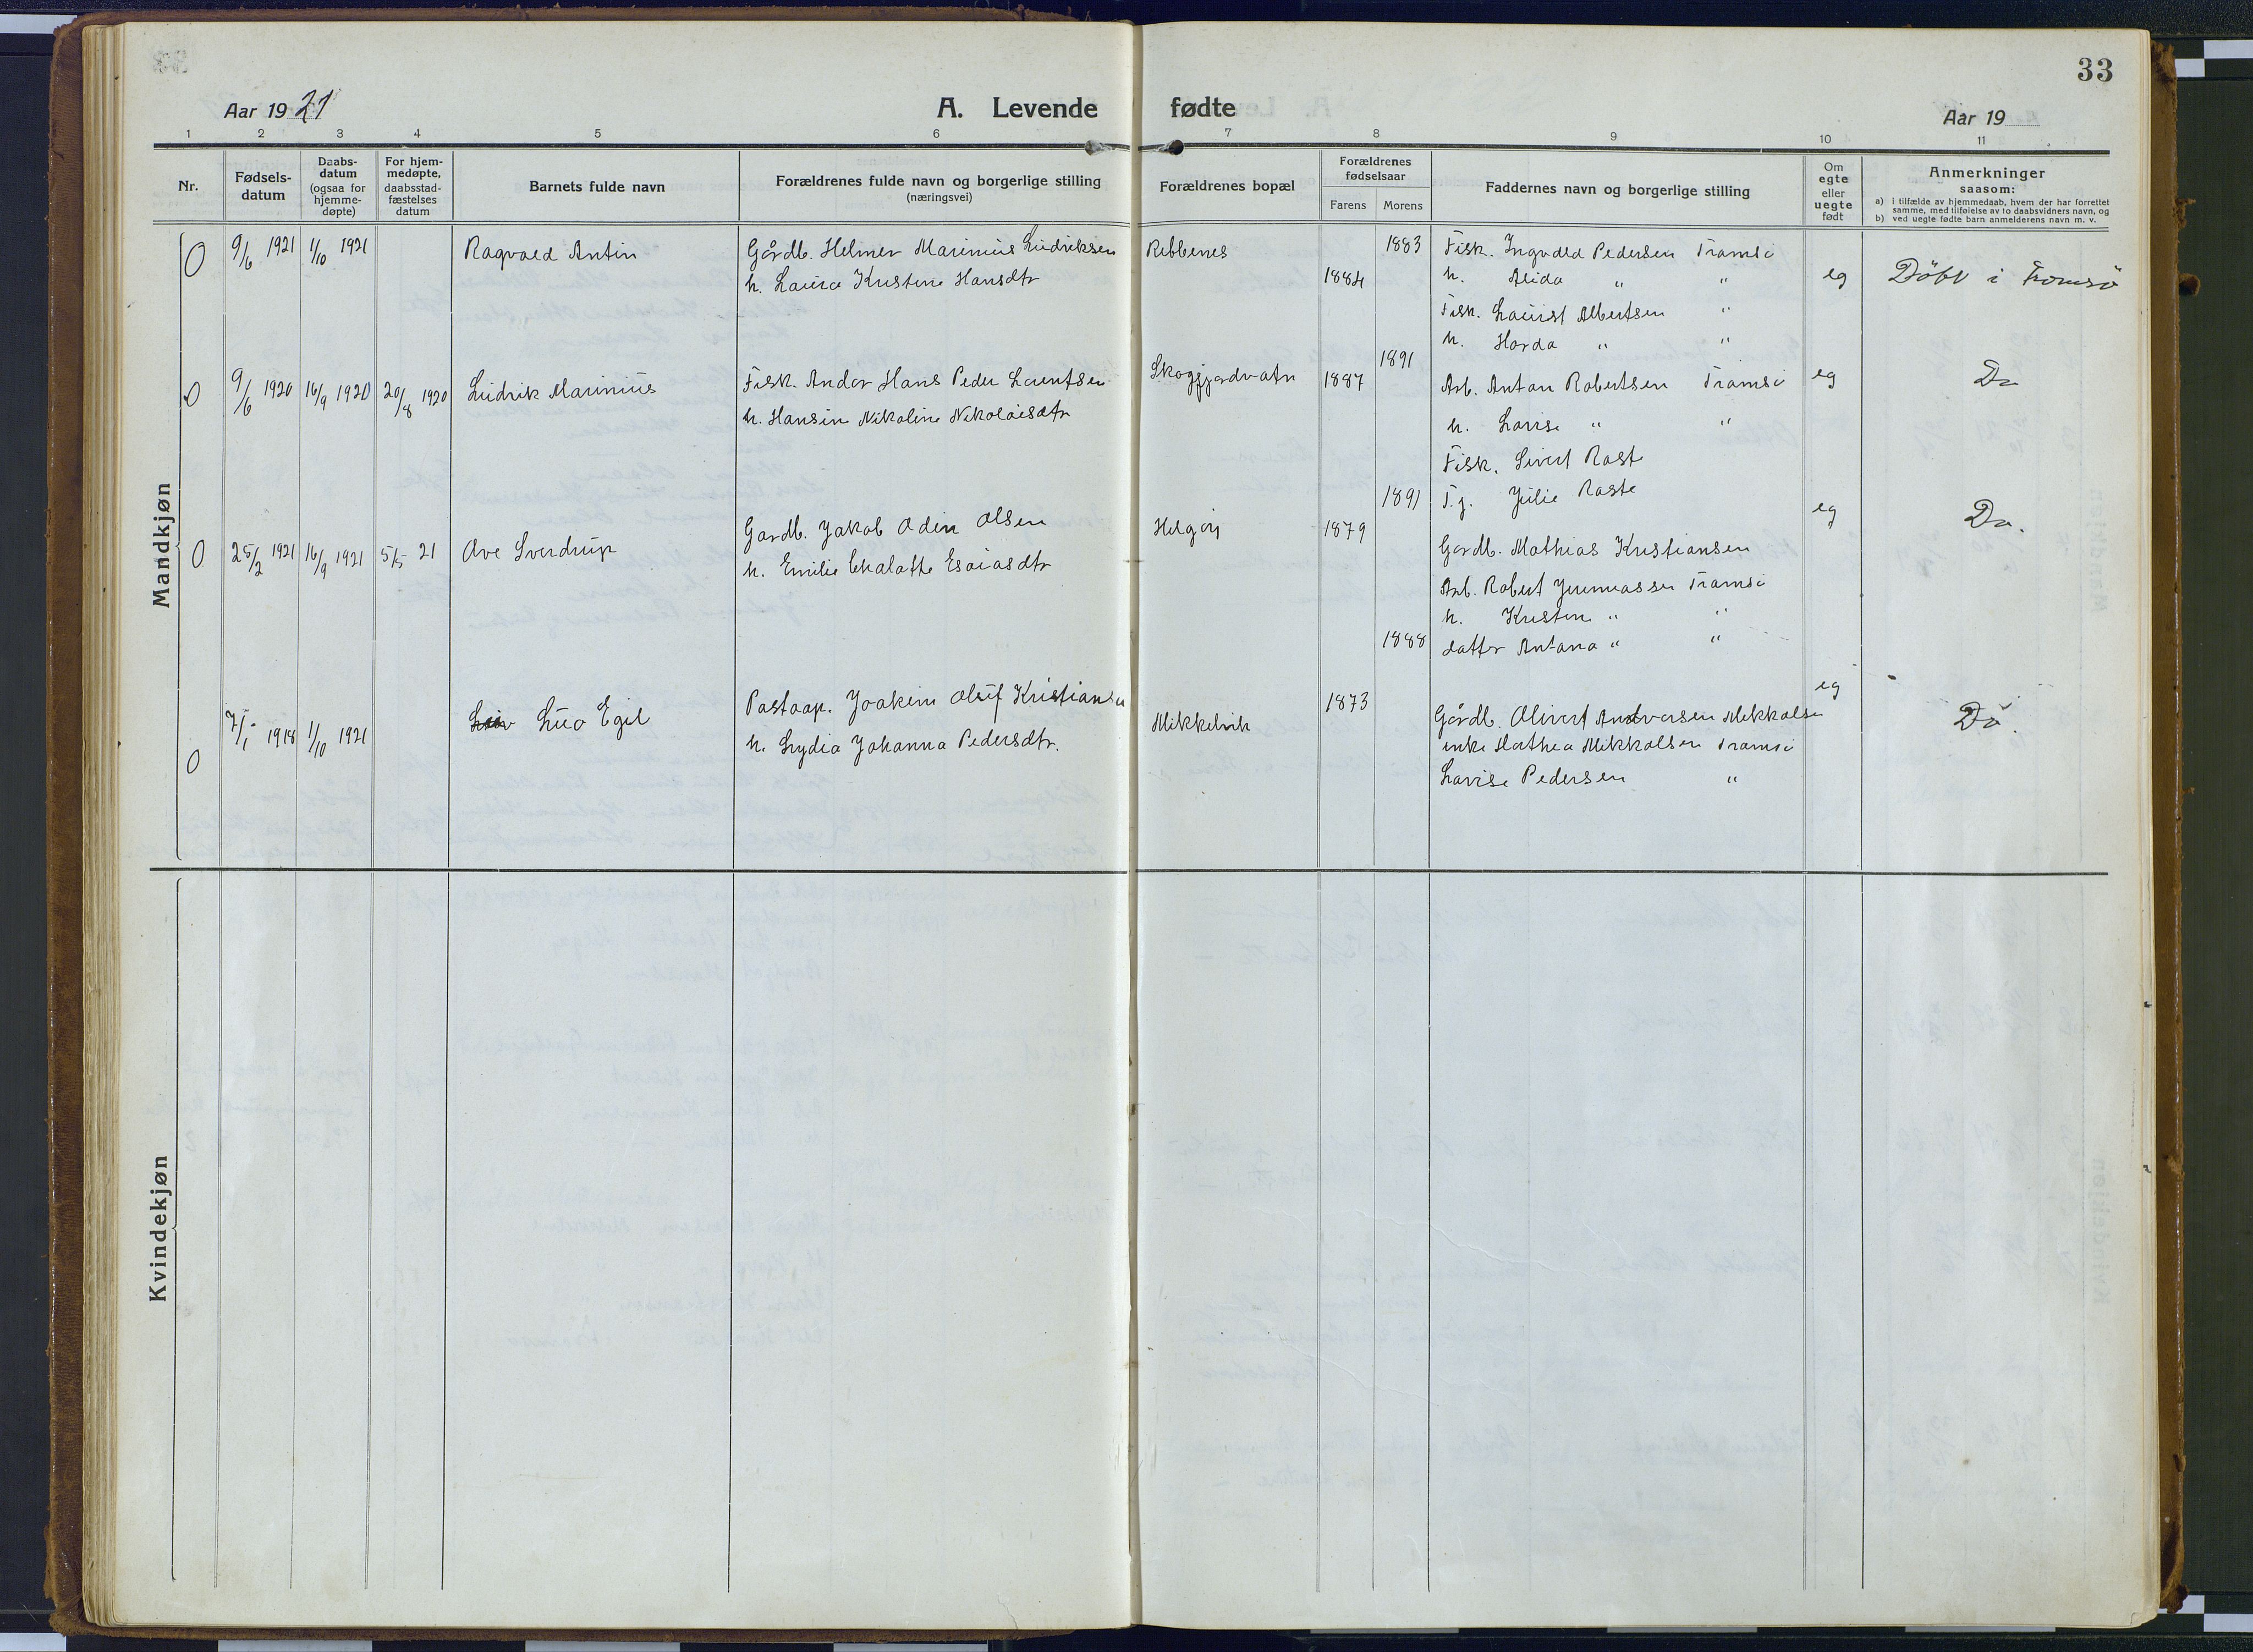 33
Aar 1921
A. Levende fødte
Aar 19
1 2 3 4 5 6 7 8 9 10 11
Nr.
Fødsels-
datum
Daabs-
datum
(ogsaa for
hjemme-
døpte)
For hjem-
medøpte,
daabsstad-
fæstelses
datum
Barnets fulde navn
Forældrenes fulde navn og borgerlige stilling
(næringsvei)
Forældrenes bopæl
Forældrenes
fødselsaar
Farens Morens
Faddernes navn og borgerlige stilling
Om
egte
eller
uegte
født
Anmerkninger
saasom:
a) i tilfælde av hjemmedaab, hvem der har forrettet
samme, med tilføielse av to daabsvidners navn, og
b) ved uegte fødte barn anmelderens navn m. v.
Mandkjøn
0 9/6 1921 1/10 1921 Ragvald Antin
Gårdb. Helmer Marinius Ludriksen
h. Laura Kristine Hansdtr
Rebbenes
1884 1883
Fisk. Ingvald Pedersen Tromsö
h. Alida " "
Fisk. Laurist Albertsen "
h. Harda " "
eg
Döbt i Tromsö
0 9/6 1920 16/9 1920 20/8 1920 Ludrik Marinius
Fisk. Andor Hans Peder Lorentsen
h. Hansine Nikoline Nikolaisdtr
Skogfjordvatn
1887 1891
Arb. Anton Robertsen Tromsö
h. Lovise " "
Fisk. Sivert Raste
T.j. Julie Raste
eg
Do
0 25/2 1921 16/9 1921 5/5 21 Ove Sverdrup
Gardb. Jakob Odin Olsen
h. Emilie Chalotte Esaiasdtr
Helgöy
1879 1891
Gardb. Mathias Kristiansen
Arb. Robert Jeremiassen Tromsö
h. Kristine " "
datter Antona " "
eg
Do.
0 7/1 1918 1/10 1921 Luo Egil
Postaap. Joakim Oluf Kristiansen
h. Lydia Johanna Pedersdtr.
Mikkelvik
1873 1888
Gårdb. Olivert Andersen Mikkelsen
enke Hathea Mikkalsen Tromsö
Lovise Pedersen "
eg
Do.
Kvindekjøn